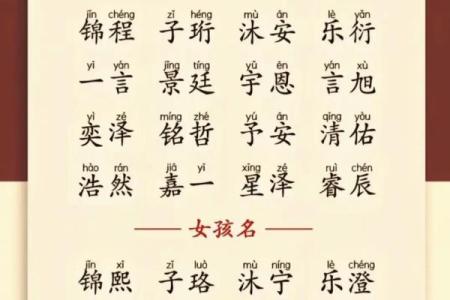 jǐn chéng zǐ héng mù ān lè yǎn
锦程 子珩 沐安 乐衍
yì yán jǐng tíng yǔ ēn yán xù
一言 景廷 宇恩 言旭
yì zé míng zhé yú ān qīng yòu
奕泽 铭哲 予安 清佑
hào rán jiā yī xīng zé ruì chén
浩然 嘉一 星泽 睿辰
女孩名
jǐn xī zǐ luò mù níng lè chéng
锦熙 子珞 沐宁 乐澄